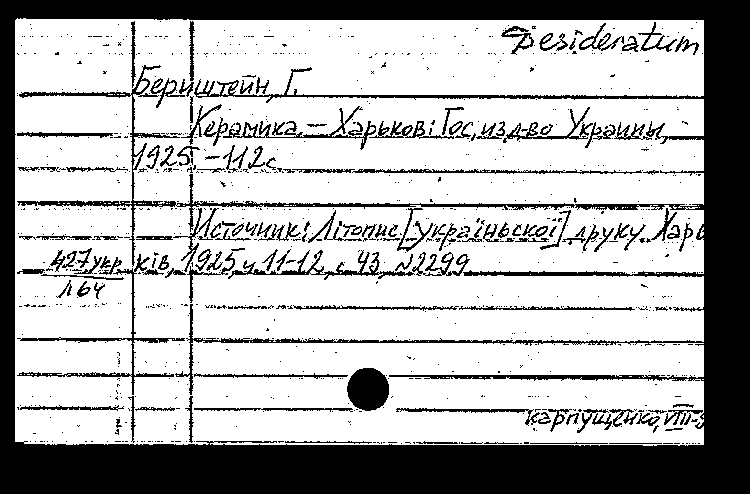 Desideratum
Бернштейн, Г.
Керамика. — Харьков: Гос. изд-во Украины,
1925. - 112 с
Источник: Літопис [україньскої] друку. Харь
427 укр ків, 1925, ч. 11-12, с. 43, №2299
Л64
Карпущенко, VIII-9